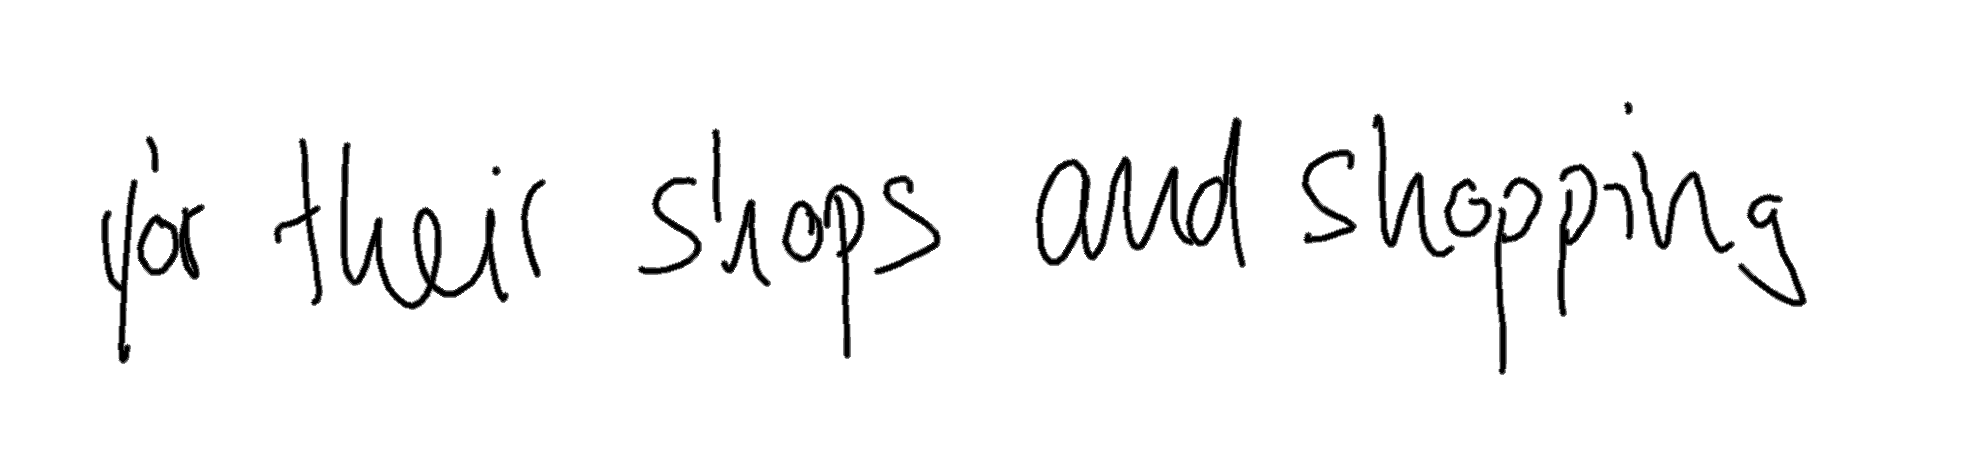 for their shops and shopping